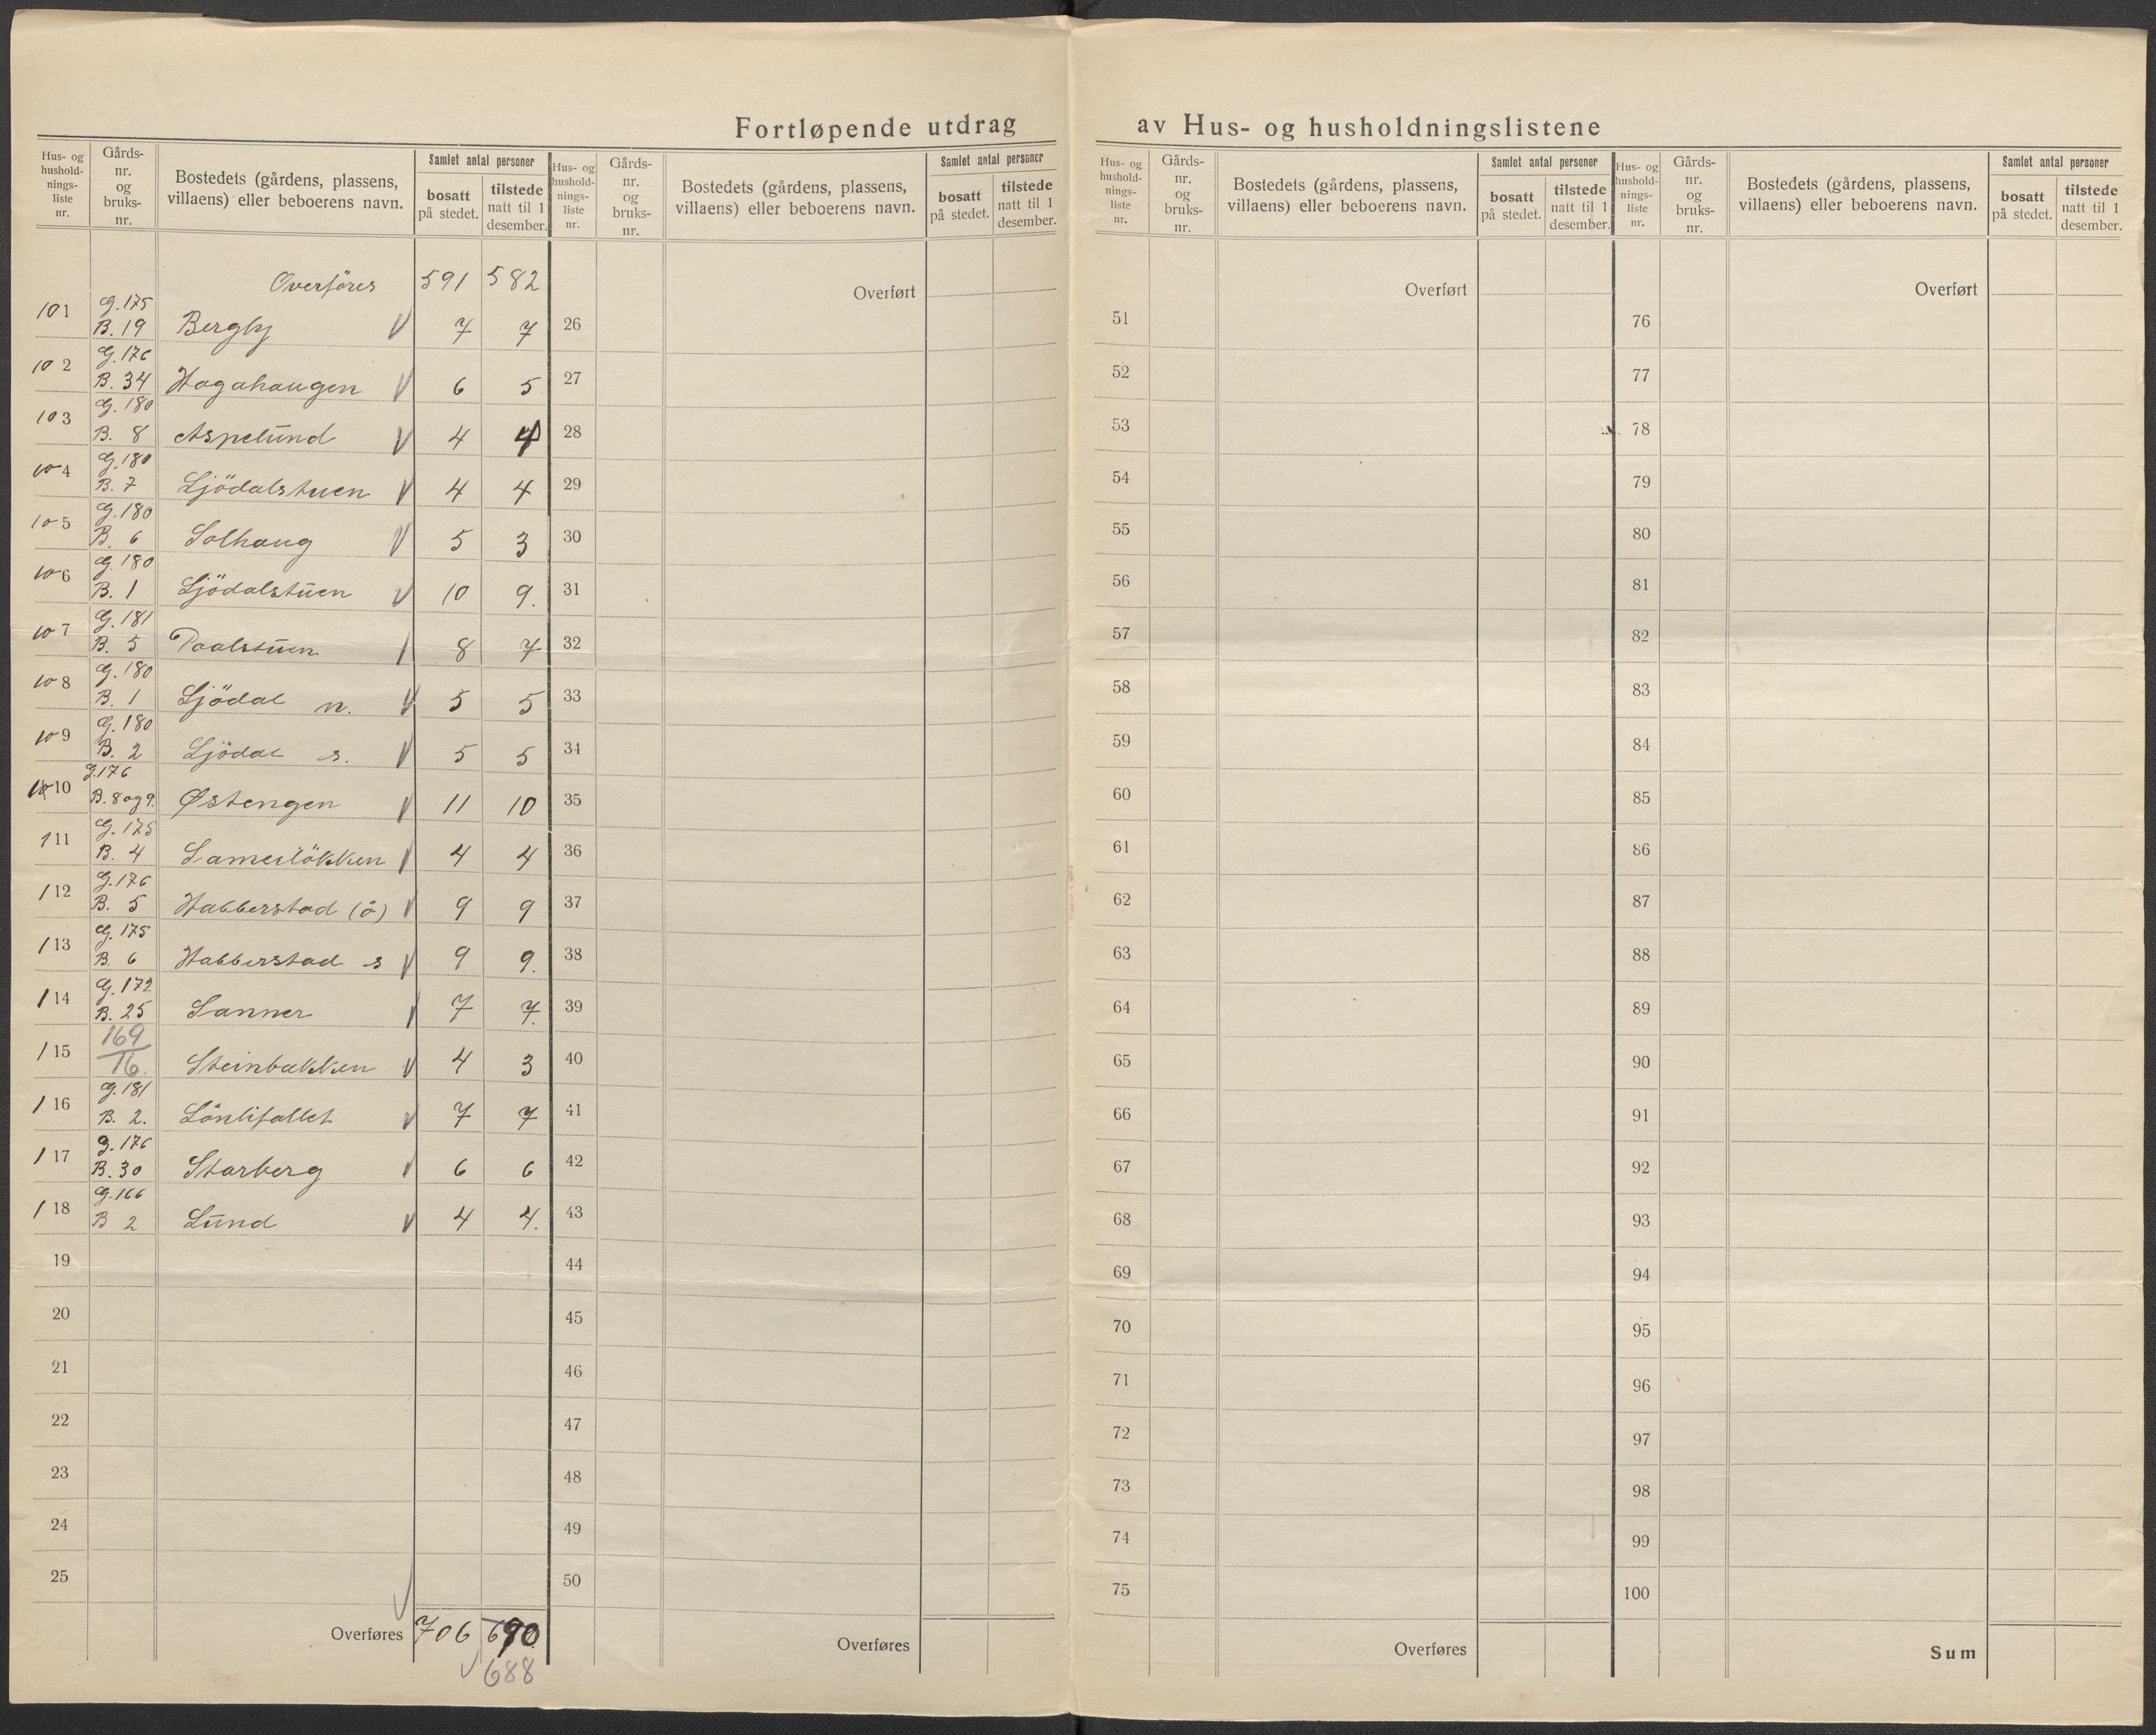 Fortløpende utdrag av Hus- og husholdningslistene
Hus- og
hushold-
nings-
liste
nr.
Gårds-
nr.
og
bruks-
nr.
Bostedets (gårdens, plassens,
villaens) eller beboerens navn.
Samlet antal personer
bosatt
på stedet.
tilstede
natt til 1
desember.
Overföres 591 582
101 G. 175 B. 19 Bergby V 7 7
102 G. 176 B. 34 Hagahaugen V 6 5
103 G. 180 B. 8 Aspelund V 4 4
104 G. 180 B. 7 Ljödalstuen V 4 4
105 G. 180 B. 6 Solhaug V 5 3
106 G. 180 B. 1 Ljödalstuen V 10 9.
107 G. 181 B. 5 Paalstuen 8 7
108 G. 180 B. 1 Ljödal n. V 5 5
109 G. 180 B. 2 Ljödal s. V 5 5
110 G. 176 B. 8 og 9. Østengen V 11 10
111 G. 175 B. 4 4 4
112 G. 176 B. 5 Habberstad (ö) V 9 9
113 G. 175 B. 6 Habberstad s V 9 9.
114 G. 172 B. 25 Sanner 7 7.
115 169/16. Steinbakken V 4 3
116 G. 181 B. 2. Lönlifallet V 7 7
117 G. 176 B. 30 Starberg V 6 6
118 G. 166 B 2 Lund V 4 4.
19
20
21
22
23
24
25
Overføres 706 690
688
Hus- og
hushold-
nings-
liste
nr.
Gårds-
nr.
og
bruks-
nr.
Bostedets (gårdens, plassens,
villaens) eller beboerens navn.
Samlet antal personer
bosatt
på stedet.
tilstede
natt til 1
desember.
Overført
26
27
28
29
30
31
32
33
34
35
36
37
38
39
40
41
42
43
44
45
46
47
48
49
50
Overføres
Hus- og
hushold-
nings-
liste
nr.
Gårds-
nr.
og
bruks-
nr.
Bostedets (gårdens, plassens,
villaens) eller beboerens navn.
Samlet antal personer
bosatt
på stedet.
tilstede
natt til 1
desember.
Overført
51
52
53
54
55
56
57
58
59
60
61
62
63
64
65
66
67
68
69
70
71
72
73
74
75
Overføres
Hus- og
hushold-
nings-
liste
nr.
Gårds-
nr.
og
bruks-
nr.
Bostedets (gårdens, plassens,
villaens) eller beboerens navn.
Samlet antal personer
bosatt
på stedet.
tilstede
natt til 1
desember.
Overført
76
77
78
79
80
81
82
83
84
85
86
87
88
89
90
91
92
93
94
95
96
97
98
99
100
Sum